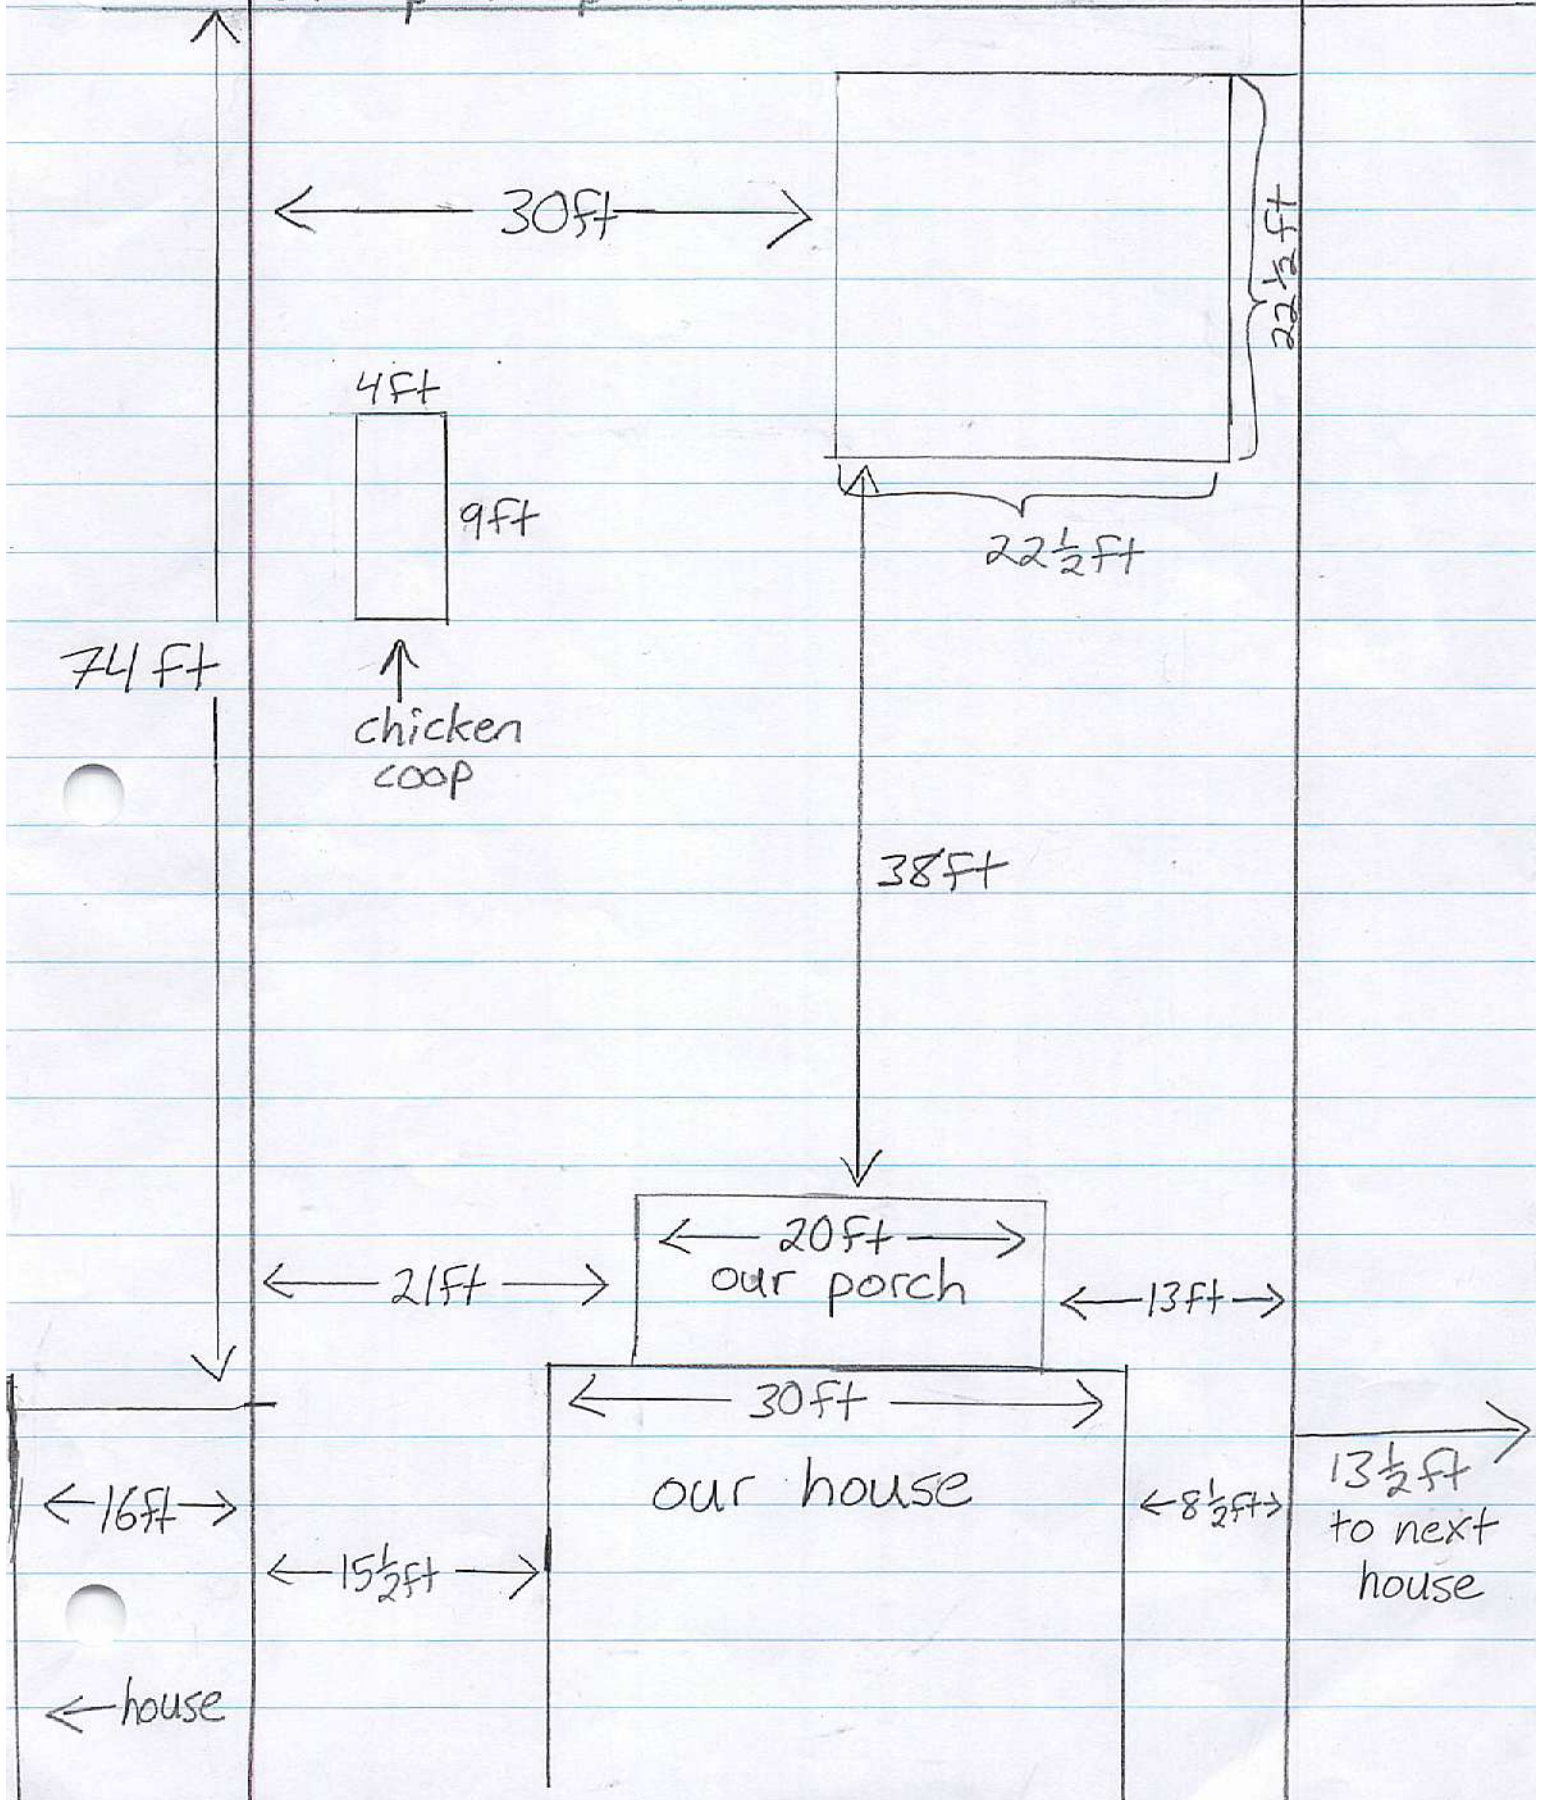 30ft
22 1/2 ft
4ft
9ft
22 1/2 ft
74 ft
chicken
coop
38ft
20ft
our porch
21ft
13ft
30ft
our house
16ft
8 1/2 ft
13 1/2 ft
to next
house
15 1/2 ft
house